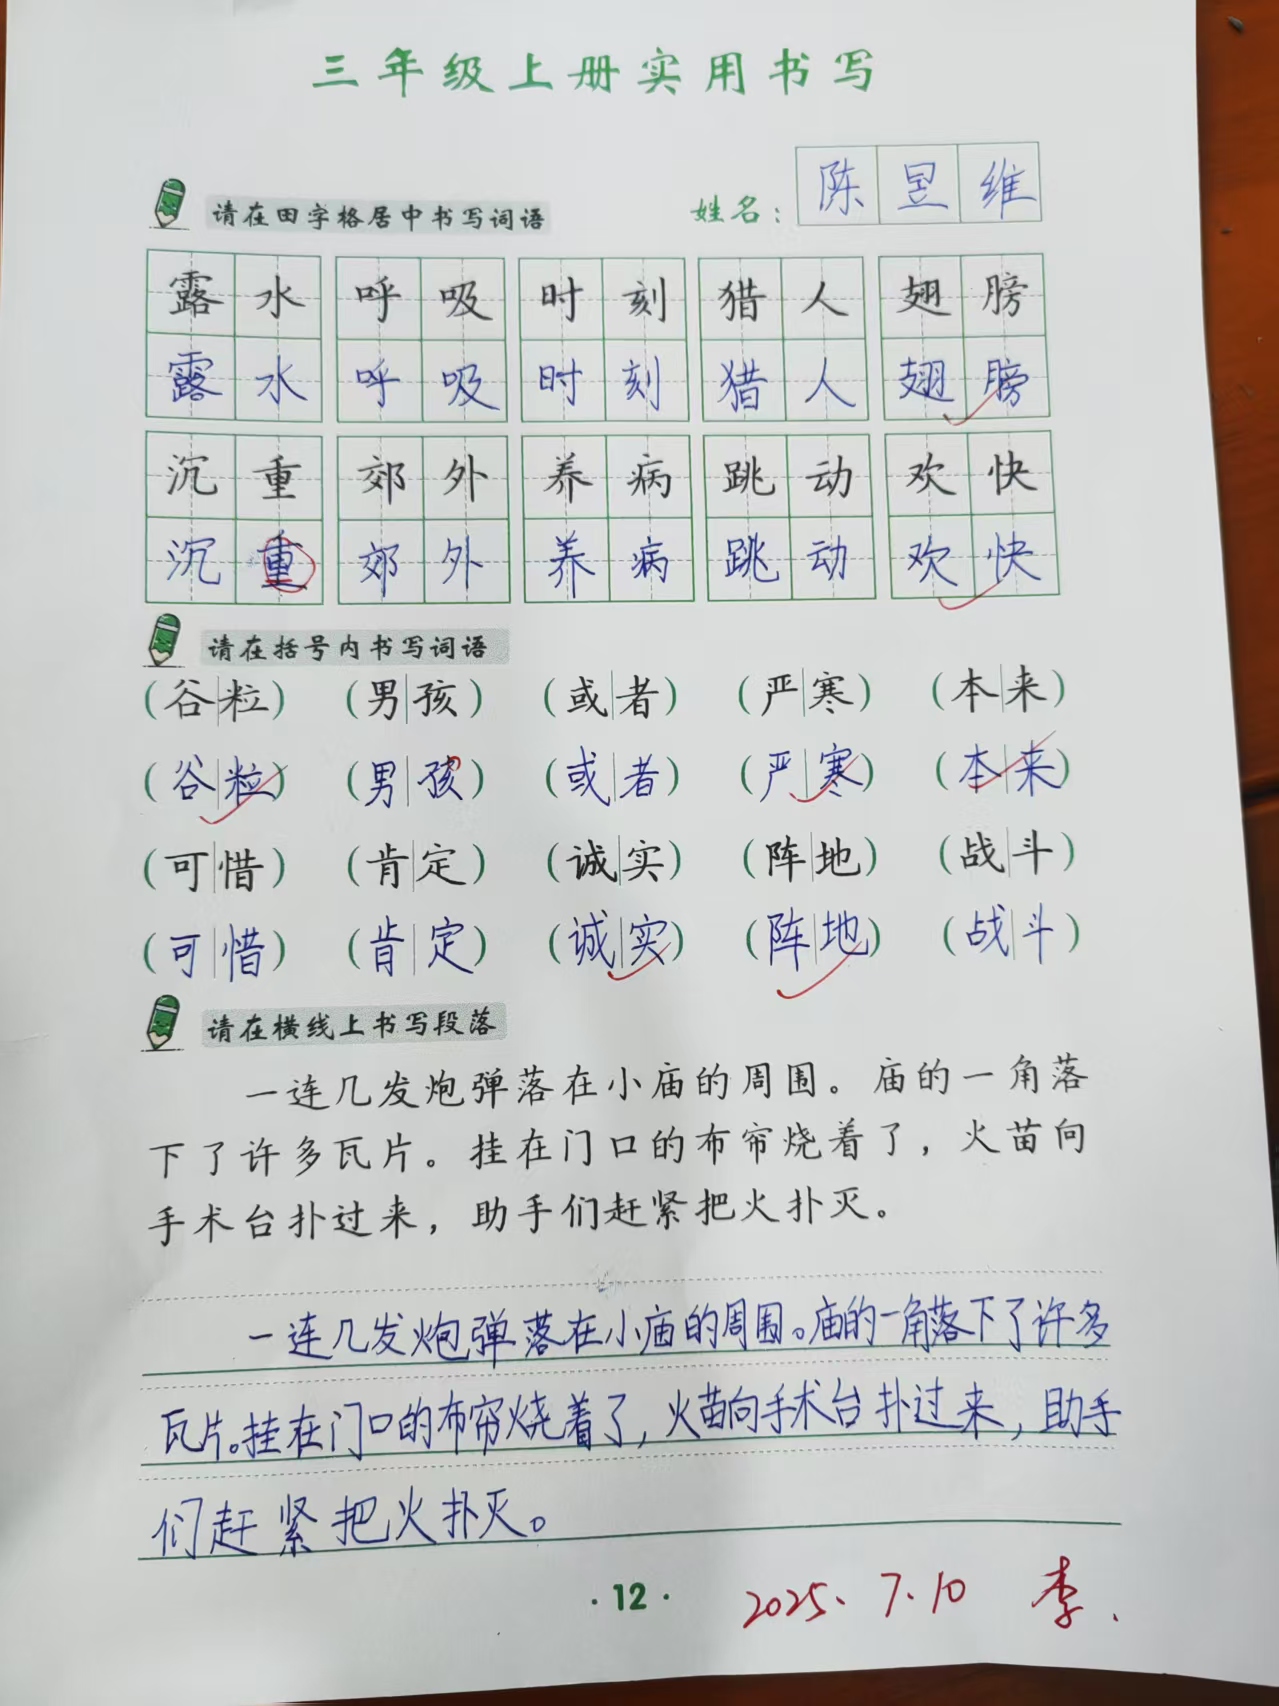 三年级上册实用书写
请在田字格居中书写词语 姓名： 陈昱维
露水 呼吸 时刻 猎人 翅膀
露水 呼吸 时刻 猎人 翅膀
沉重 郊外 养病 跳动 欢快
沉重 郊外 养病 跳动 欢快
请在括号内书写词语
（谷粒） （男孩） （或者） （严寒） （本来）
（谷粒） （男孩） （或者） （严寒） （本来）
（可惜） （肯定） （诚实） （阵地） （战斗）
（可惜） （肯定） （诚实） （阵地） （战斗）
请在横线上书写段落
一连几发炮弹落在小庙的周围。庙的一角落
下了许多瓦片。挂在门口的布帘烧着了，火苗向
手术台扑过来，助手们赶紧把火扑灭。
一连几发炮弹落在小庙的周围。庙的一角落下了许多
瓦片。挂在门口的布帘烧着了，火苗向手术台扑过来，助手
们赶紧把火扑灭。
·12· 2025.7.10 李.